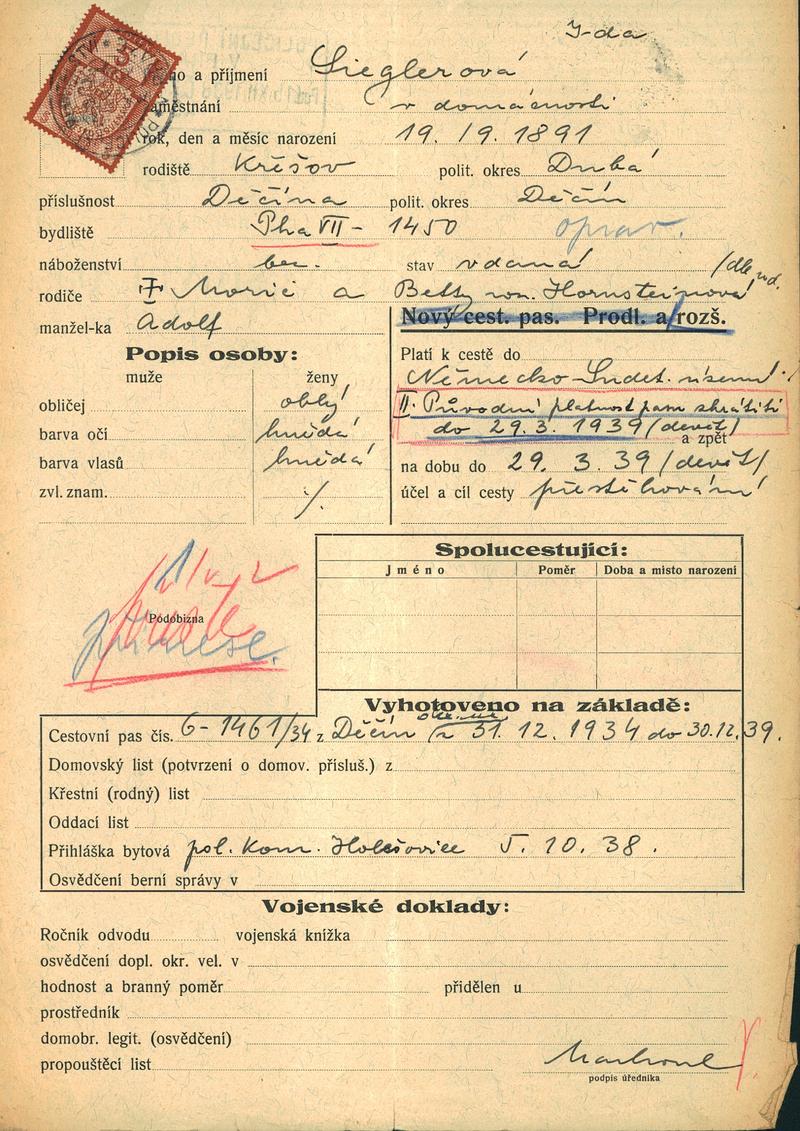 Ida
Jméno a příjmení Sieglerová
zaměstnání v domácnosti
rok, den a měsíc narození 19. 9. 1891
rodiště Křěšov polit. okres Drubá
příslušnost Děčína polit. okres Děčín
bydliště Pha VII - 1450 oprav.
náboženství bez. stav vdaná
rodiče Moric a Betty roz. Hornsteinová
manžel-ka Adolf Nový cest. pas. Prodl. a rozš.
Popis osoby:
muže ženy
Platí k cestě do
Německo - Sudet. území
obličej oblý
II. Původní platnost pasu zkrátiti
do 29. 3. 1939 (devět)
barva očí hnědá
a zpět
barva vlasů hnědá
na dobu do 29. 3. 39 (devět)
zvl. znam. /.
účel a cíl cesty přestěhování
Spolucestující:
Jméno Poměr Doba a místo narození
Podobizna
Vyhotoveno na základě:
Cestovní pas čís. 6-1461/34 z Děčín z 31. 12. 1934 do 30.12.39.
Domovský list (potvrzení o domov. přísluš.) z
Křestní (rodný) list
Oddací list
Přihláška bytová pol. kom. Holešovice 5. 10. 38.
Osvědčení berní správy v
Vojenské doklady:
Ročník odvodu vojenská knížka
osvědčení dopl. okr. vel. v
hodnost a branný poměr přidělen u
prostředník
domobr. legit. (osvědčení)
propouštěcí list
podpis úředníka